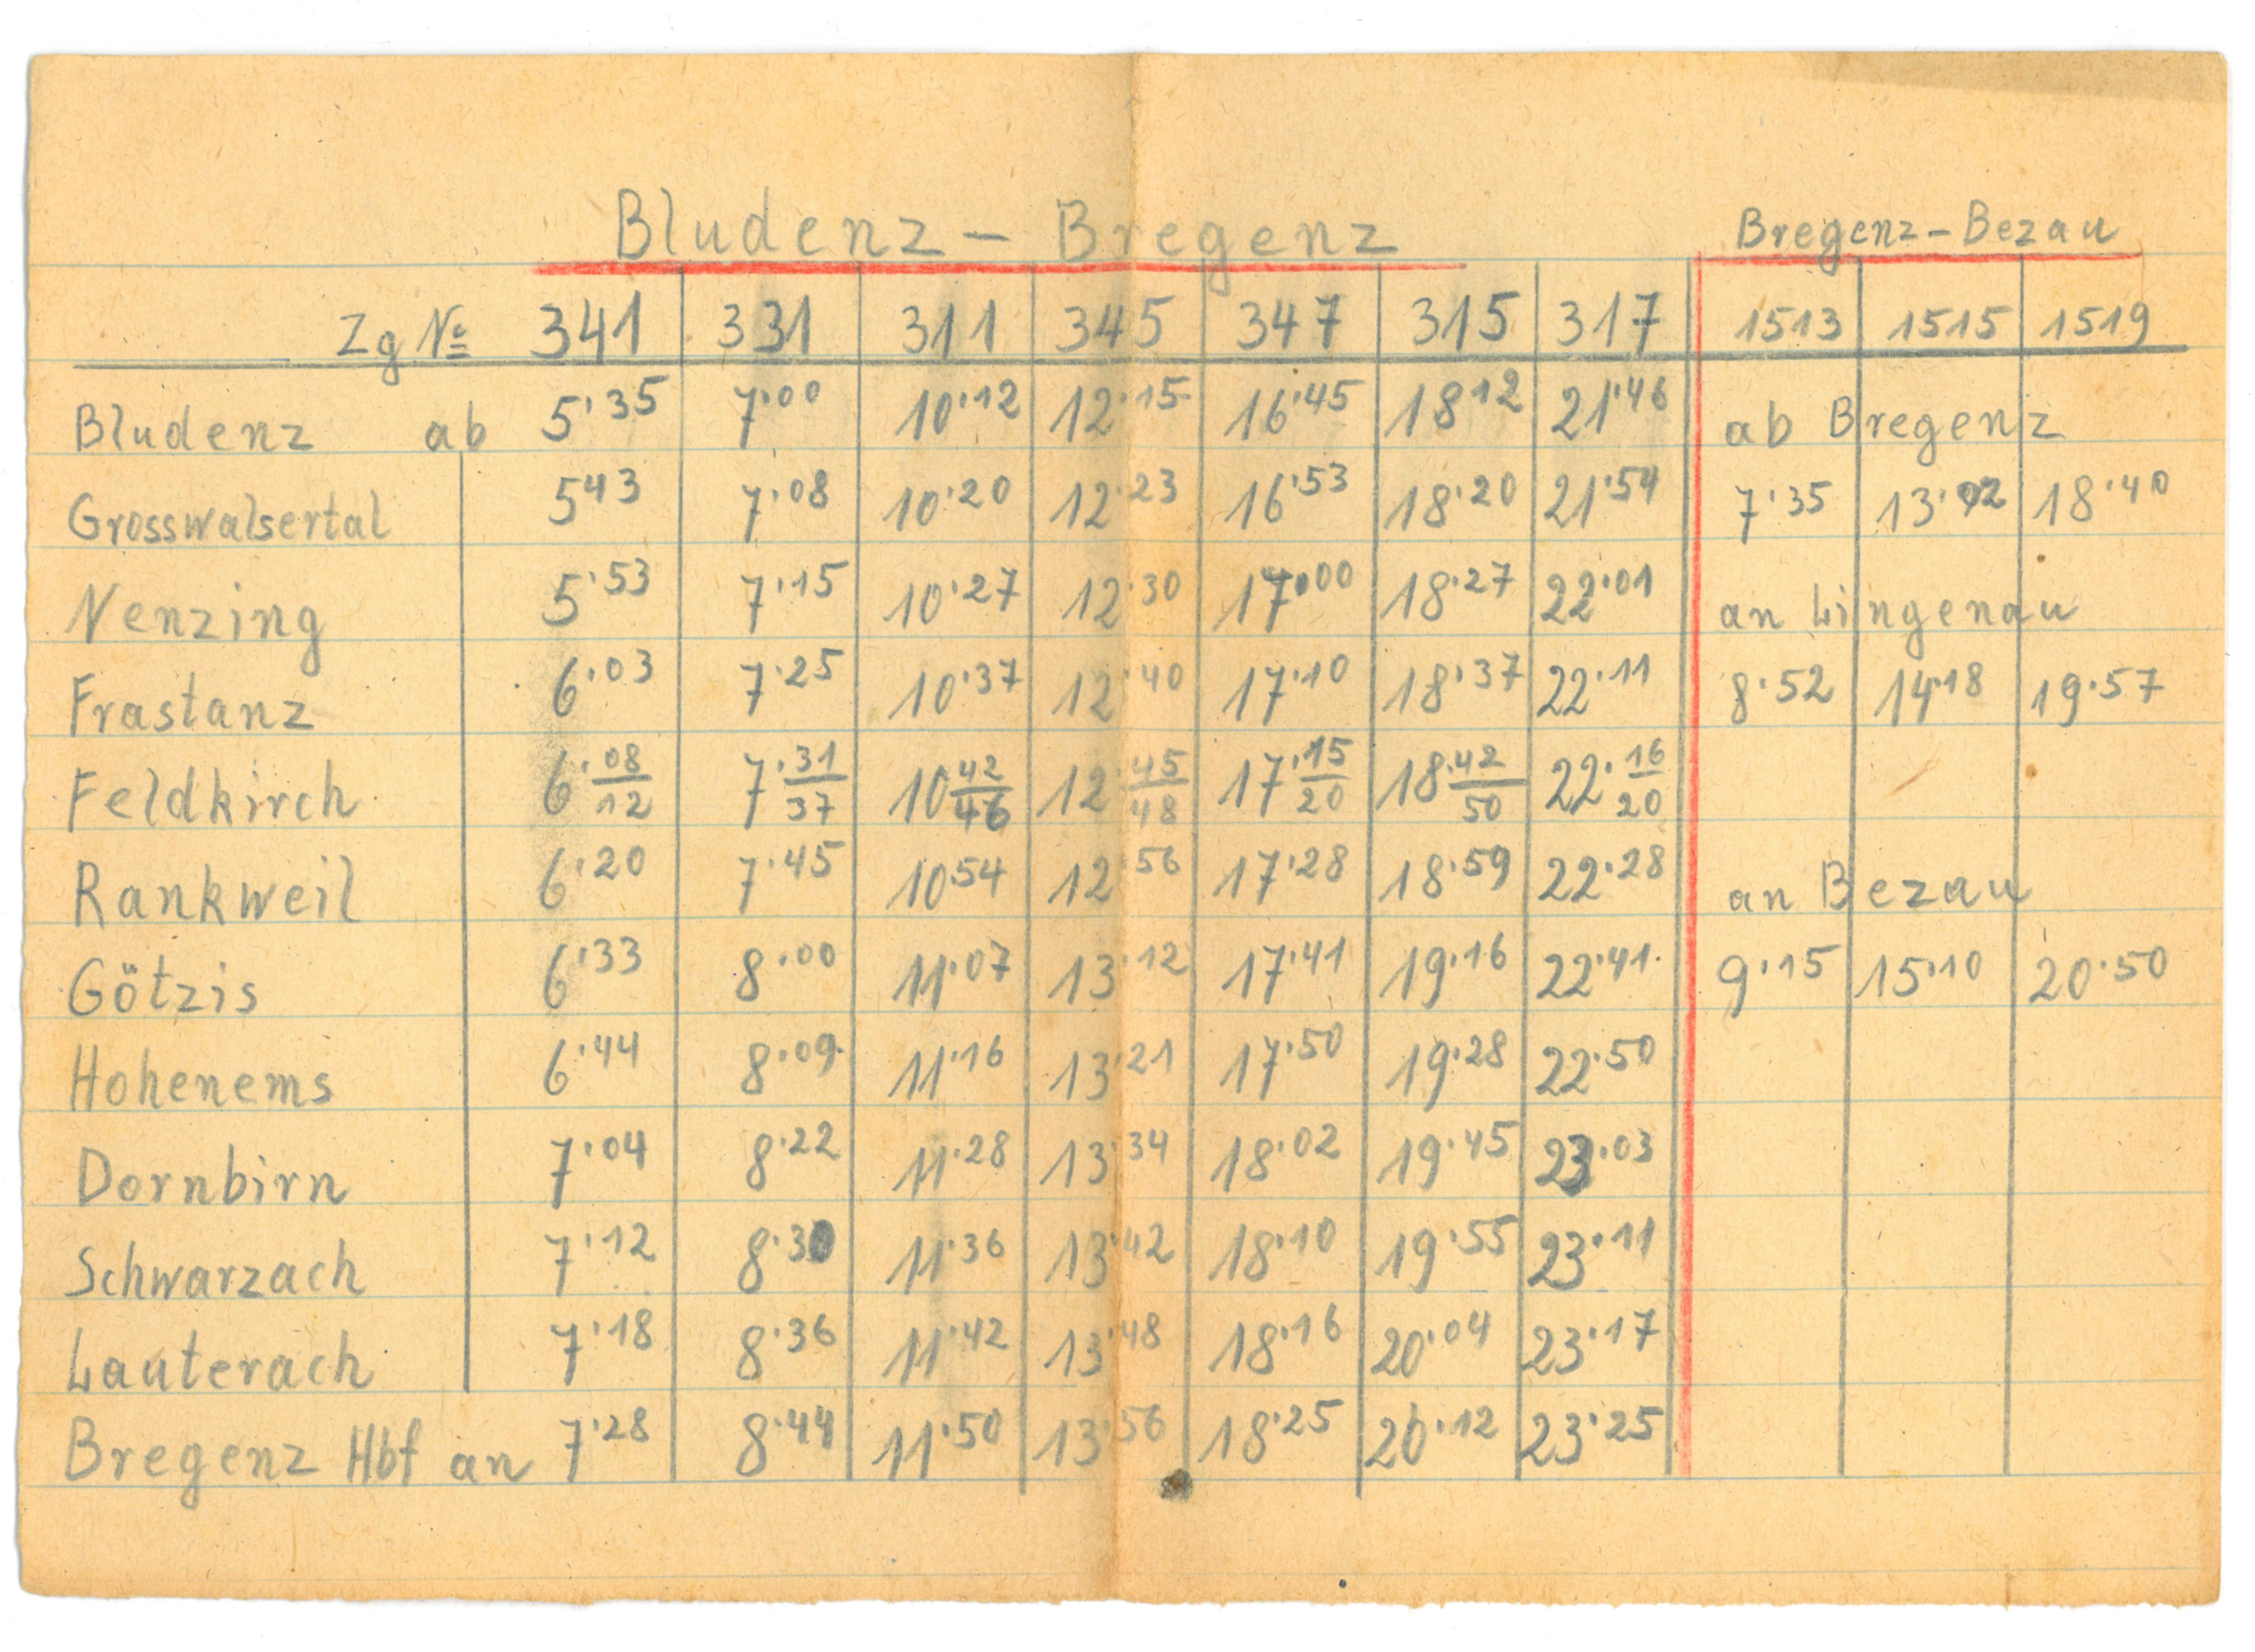 Bludenz – Bregenz Bregenz–Bezau
Zg № 341 331 311 345 347 315 317 1513 1515 1519
Bludenz ab 5·35 7·00 10·12 12·15 16·45 18 12 21·46 ab Bregenz
Grosswalsertal 5 43 7·08 10·20 12·23 16·53 18·20 21·54 7·35 13·02 18·40
Nenzing 5·53 7·15 10·27 12·30 17·00 18·27 22·01 an Lingenau
Frastanz 6·03 7·25 10·37 12·40 17·10 18·37 22·11 8·52 14·18 19·57
Feldkirch 6·08/12 7·31/37 10 42/46 12·45/48 17·15/20 18·42/50 22·16/20
Rankweil 6·20 7·45 10·54 12·56 17·28 18·59 22·28 an Bezau
Götzis 6·33 8·00 11·07 13·12 17·41 19·16 22·41 9·15 15·10 20·50
Hohenems 6·44 8·09 11·16 13·21 17·50 19·28 22·50
Dornbirn 7·04 8·22 11·28 13·34 18·02 19·45 23·03
Schwarzach 7·12 8·30 11·36 13·42 18·10 19·55 23·11
Lauterach 7·18 8·36 11·42 13·48 18·16 20·04 23·17
Bregenz Hbf an 7·28 8·44 11·50 13·56 18·25 20·12 23·25